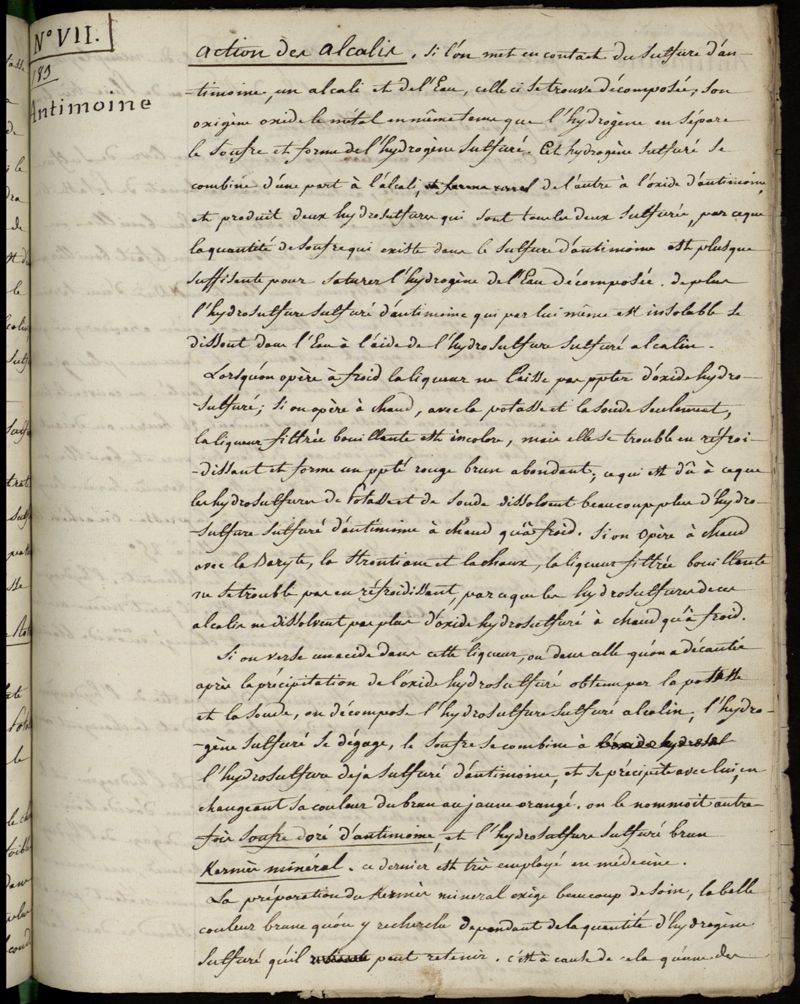 N.º VII.
189
Antimoine
Action des alcalis. Si l'on met en contact du sulfure d'an-
-timoine, un alcali et de l'Eau, celle ci se trouve décomposée; son
oxigène oxide le métal en même tems que l'hydrogène en sépare
le soufre et forme de l'hydrogène sulfuré. Cet hydrogène sulfuré se
combine d'une part à l'alcali, de l'autre à l'oxide d'antimoine,
et produit deux hydrosulfures qui sont tous les deux sulfurés, parceque
la quantité de soufre qui existe dans le sulfure d'antimoine est plus que
suffisante pour saturer l'hydrogène de l'Eau décomposée. de plus
l'hydrosulfure sulfuré d'antimoine qui par lui même est insoluble se
dissout dans l'Eau à l'aide de l'hydrosulfure sulfuré alcalin.
Lorsqu'on opère à froid la liqueur ne laisse pas ppter d'oxide hydro-
-sulfuré; si on opère à chaud, avec la potasse et la soude seulement,
la liqueur filtrée bouillante est incolore, mais elle se trouble en réfroi-
-dissant et forme un ppté rouge brun abondant; ce qui est dû à ceque
les hydrosulfures de Potasse et de Soude dissolvent beaucoup plus d'hydro-
-sulfure sulfuré d'antimoine à chaud qu'à froid. Si on opère à chaud
avec la Baryte, la Strontiane et la chaux, la liqueur filtrée bouillante
ne se trouble pas en réfroidissant, parceque les hydrosulfures de ces
alcalis ne dissolvent pas plus d'oxide hydrosulfuré à chaud qu'à froid.
Si on verse un acide dans cette liqueur, ou dans celle qu'on a décantée
après la précipitation de l'oxide hydrosulfuré obtenu par la potasse
et la soude, on décompose l'hydrosulfure sulfuré alcalin, l'hydro-
-gène sulfuré se dégage, le soufre se combine à l'oxide hydrosul
l'hydrosulfure deja sulfuré d'antimoine, et se précipite avec lui, en
changeant sa couleur du brun au jaune orangé. on le nommoit autre-
fois soufre doré d'antimoine, et l'hydrosulfure sulfuré brun
Kermès minéral. ce dernier est très employé en médecine.
La préparation du Kermès mineral exige beaucoup de soin, la belle
couleur brune qu'on y recherche dependant de la quantité d'hydrogène
sulfuré qu'il peut retenir. c'est à cause de cela qu'une des